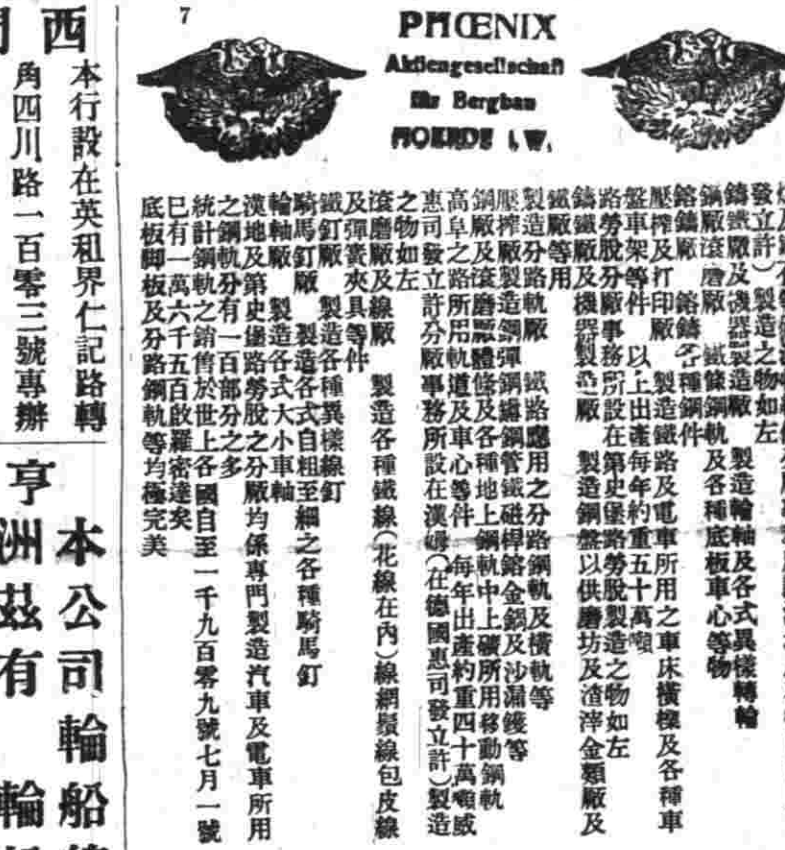 7
PHŒNIX
Aktiengesellschaft
für Bergbau
HOERDE i. W.
發立許）製造之物如左
鑄鐵廠及機器製造廠 製造輪軸及各式異樣轉輪
鋼廠滾磨廠 鐵條鋼軌及各種底板車心等物
鎔鑄廠 鎔鑄各種鋼件
壓搾及打印廠 製造鐵路及電車所用之車床橫檩及各種車
盤車架等件 以上出產每年約重五十萬噸
路勞脫分廠事務所設在第史堡路勞脫製造之物如左
鑄鐵廠及機器製造廠 製造鋼盤以供磨坊及渣滓金類廠及
鐵廠等用
製造分路軌廠 鐵路應用之分路鋼軌及橫軌等
壓搾廠製造鋼彈鋼罏鋼管鐵磁桿鎔金鍋及沙漏鑊等
鋼廠及滾磨廠體條及各種地上鋼軌中上礦所用移動鋼軌
高阜之路所用軌道及車心等件 每年出產約重四十萬噸威
惠司發立許分廠事務所設在漢姆（在德國惠司發立許）製造
之物如左
滾磨廠及線廠 製造各種鐵線（花線在內）線網鬚線包皮線
及彈簧夾具等件
鐵釘廠 製造各種異樣線釘
騎馬釘廠 製造各式自粗至細之各種騎馬釘
輪軸廠 製造各式大小車軸
漢地及第史堡路勞脫之分廠均係專門製造汽車及電車所用
之鋼軌分有一百部分之多
統計鋼軌之銷售於世上各國自至一千九百零九號七月一號
已有一萬六千五百啟羅密達矣
底板脚板及分路鋼軌等均極完美
西
本行設在英租界仁記路轉
角四川路一百零三號專辦
亨
本公司輪船
洲茲有 輪